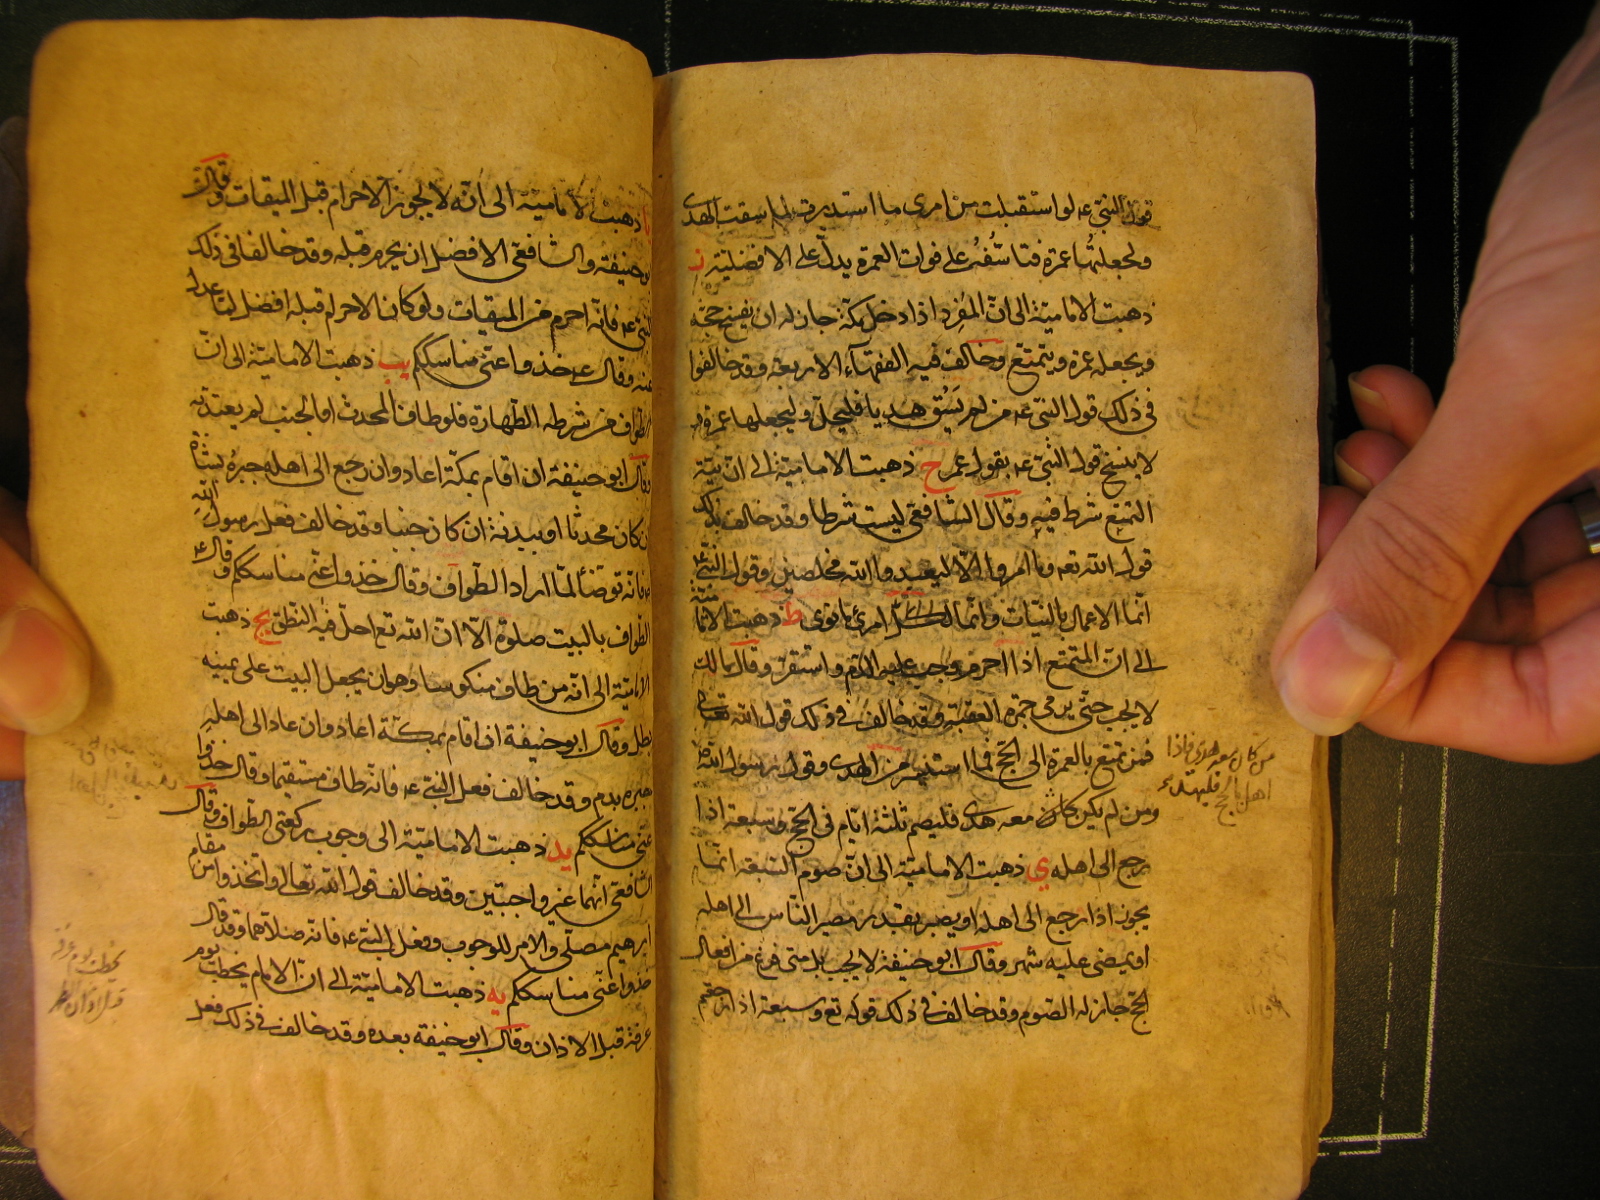 قول النبي عه لو استقبلت من امري ما استدبرت لما سقت الهدى
ولجعلتها عمرة فتاسّفه على فوات العمرة يدلّ على الافضلية ز
ذهبت الامامية الى انّ المفرد اذا دخل مكة جاز له ان يفسخ حجّه
ويجعله عمرة ويتمتع وخالف فيه الفقهآء الاربعة وقد خالفوا
فى ذلك قول النبي عه من لم يَسُق هديا فليحلّ وليجعلها عمرة و
لا ينسخ قول النبي عه بقول عمر ح ذهبت الامامية الى ان نيّة
التمتع شرط فيه وقال الشافعى ليست شرطا وقد خالف بذلك
قول الله تعه وما امروا الّا ليعبدوا الله مخلصين وقول النبي عه
انّما الاعمال بالنيات وانّما لكلّ امرئ ما نوى ط ذهبت الامامية
الى انّ المتمتع اذا احرم وجب عليه الدم واستقرّ وقال مالك
لا يجب حتّى يرمى جمرة العقبة وقد خالف فى ذلك قول الله تعالى
فمن تمتع بالعمرة الى الحج فما استيسر من الهدى وقول رسول الله ص
من كان معه هدى فاذا
اهل بالحج فليهد
ومن لم يكن معه هدى فليصم ثلثة ايّام فى الحج وسبعة اذا
رجع الى اهله ي ذهبت الامامية الى انّ صوم السبعة انّما
يجوز اذا رجع الى اهله او يصبر بقدر مصير الناس الى اهله
او يمضى عليه شهر وقال ابو حنيفة لا يجب بل متى فرغ من افعال
الحج جاز له الصوم وقد خالف فى ذلك قوله تع وسبعة اذا رجعتم
يا ذهبت الامامية الى انّه لا يجوز الاحرام قبل الميقات وقال
ابو حنيفة والشافعى الافضل ان يحرم قبله وقد خالفا فى ذلك
النبي عه فانّه احرم من الميقات ولو كان الاحرام قبله افضل لما عدل
عنه وقال عه خذوا عنّى مناسككم يب ذهبت الامامية الى انّ
الطواف من شرطه الطهارة فلو طاف المحدث او الجنب لم يعتدّ به
وقال ابو حنيفة ان اقام بمكّة اعاد وان رجع الى اهله جبره بشاة
ان كان محدثا او ببدنة ان كان جنبا وقد خالف فعل رسول الله
ص فانّه توضّأ لمّا اراد الطواف وقال خذوا عنّى مناسككم وقال عه
الطواف بالبيت صلوة الّا انّ الله تع احلّ فيه النطق يج ذهبت
الامامية الى انّه من طاف منكوسا وهو ان يجعل البيت على يمينه
بطل وقال ابو حنيفة ان اقام بمكّة اعاد وان عاد الى اهله
جبره بدم وقد خالف فعل النبي عه فانّه طاف مستقيما وقال خذوا
عنّى مناسككم يد ذهبت الامامية الى وجوب ركعتى الطواف وقال
الشافعى انّهما غير واجبتين وقد خالف قول الله تعالى واتخذوا من مقام
ابرهيم مصلّى والامر للوجوب وفعل النبي عه فانّه صلّاهما وقد قال
خذوا عنّى مناسككم يه ذهبت الامامية الى انّ الامام يخطب يوم
عرفة قبل الاذان وقال ابو حنيفة بعده وقد خالف فى ذلك فعل
يخطب يوم عرفة
قبل اذان الظهر